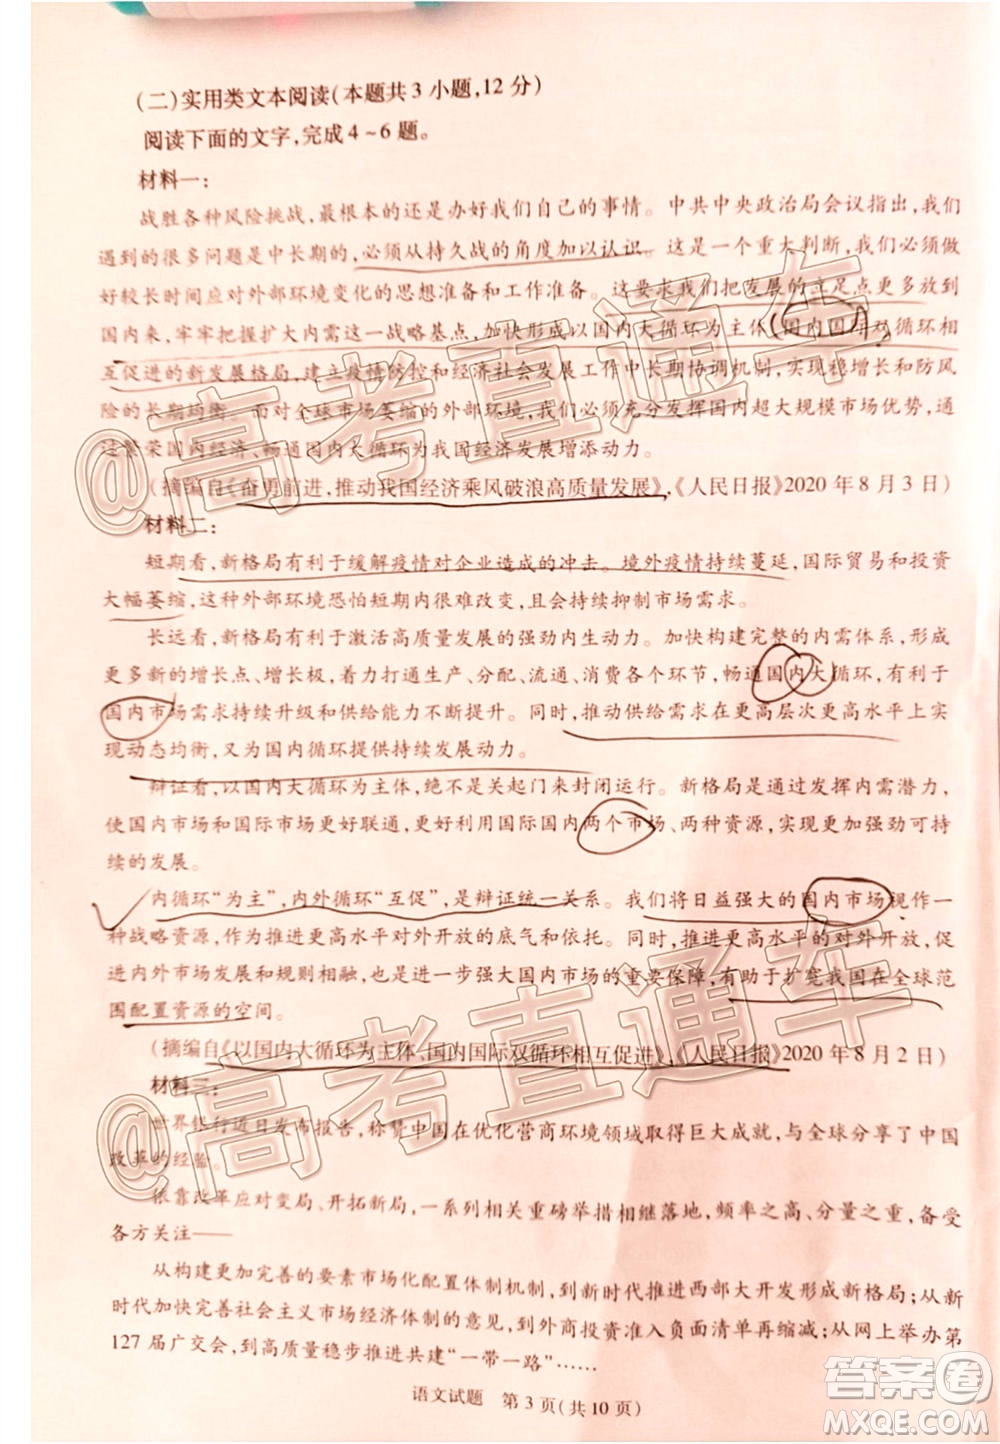 (二)实用类文本阅读(本题共3小题,12分)
阅读下面的文字,完成4~6题。
材料一:
战胜各种风险挑战,最根本的还是办好我们自己的事情。中共中央政治局会议指出,我们
遇到的很多问题是中长期的,必须从持久战的角度加以认识。这是一个重大判断,我们必须做
好较长时间应对外部环境变化的思想准备和工作准备。这要求我们把发展的立足点更多放到
国内来,牢牢把握扩大内需这一战略基点,加快形成以国内大循环为主体、国内国际双循环相
互促进的新发展格局,建立疫情防控和经济社会发展工作中长期协调机制,实现稳增长和防风
险的长期均衡。面对全球市场萎缩的外部环境,我们必须充分发挥国内超大规模市场优势,通
过繁荣国内经济、畅通国内大循环为我国经济发展增添动力。
(摘编自《奋勇前进,推动我国经济乘风破浪高质量发展》,《人民日报》2020年8月3日)
材料二:
短期看,新格局有利于缓解疫情对企业造成的冲击。境外疫情持续蔓延,国际贸易和投资
大幅萎缩,这种外部环境恐怕短期内很难改变,且会持续抑制市场需求。
长远看,新格局有利于激活高质量发展的强劲内生动力。加快构建完整的内需体系,形成
更多新的增长点、增长极,着力打通生产、分配、流通、消费各个环节,畅通国内大循环,有利于
国内市场需求持续升级和供给能力不断提升。同时,推动供给需求在更高层次更高水平上实
现动态均衡,又为国内循环提供持续发展动力。
辩证看,以国内大循环为主体,绝不是关起门来封闭运行。新格局是通过发挥内需潜力,
使国内市场和国际市场更好联通,更好利用国际国内两个市场、两种资源,实现更加强劲可持
续的发展。
内循环“为主”,内外循环“互促”,是辩证统一关系。我们将日益强大的国内市场视作一
种战略资源,作为推进更高水平对外开放的底气和依托。同时,推进更高水平的对外开放,促
进内外市场发展和规则相融,也是进一步强大国内市场的重要保障,有助于扩宽我国在全球范
围配置资源的空间。
(摘编自《以国内大循环为主体、国内国际双循环相互促进》,《人民日报》2020年8月2日)
材料三:
世界银行近日发布报告,称赞中国在优化营商环境领域取得巨大成就,与全球分享了中国
改革的经验。
依靠改革应对变局、开拓新局,一系列相关重磅举措相继落地,频率之高、分量之重,备受
各方关注——
从构建更加完善的要素市场化配置体制机制,到新时代推进西部大开发形成新格局;从新
时代加快完善社会主义市场经济体制的意见,到外商投资准入负面清单再缩减;从网上举办第
127届广交会,到高质量稳步推进共建“一带一路”……
语文试题 第3页(共10页)
@高考直通车
@高考直通车
答案圈
MXQE.COM